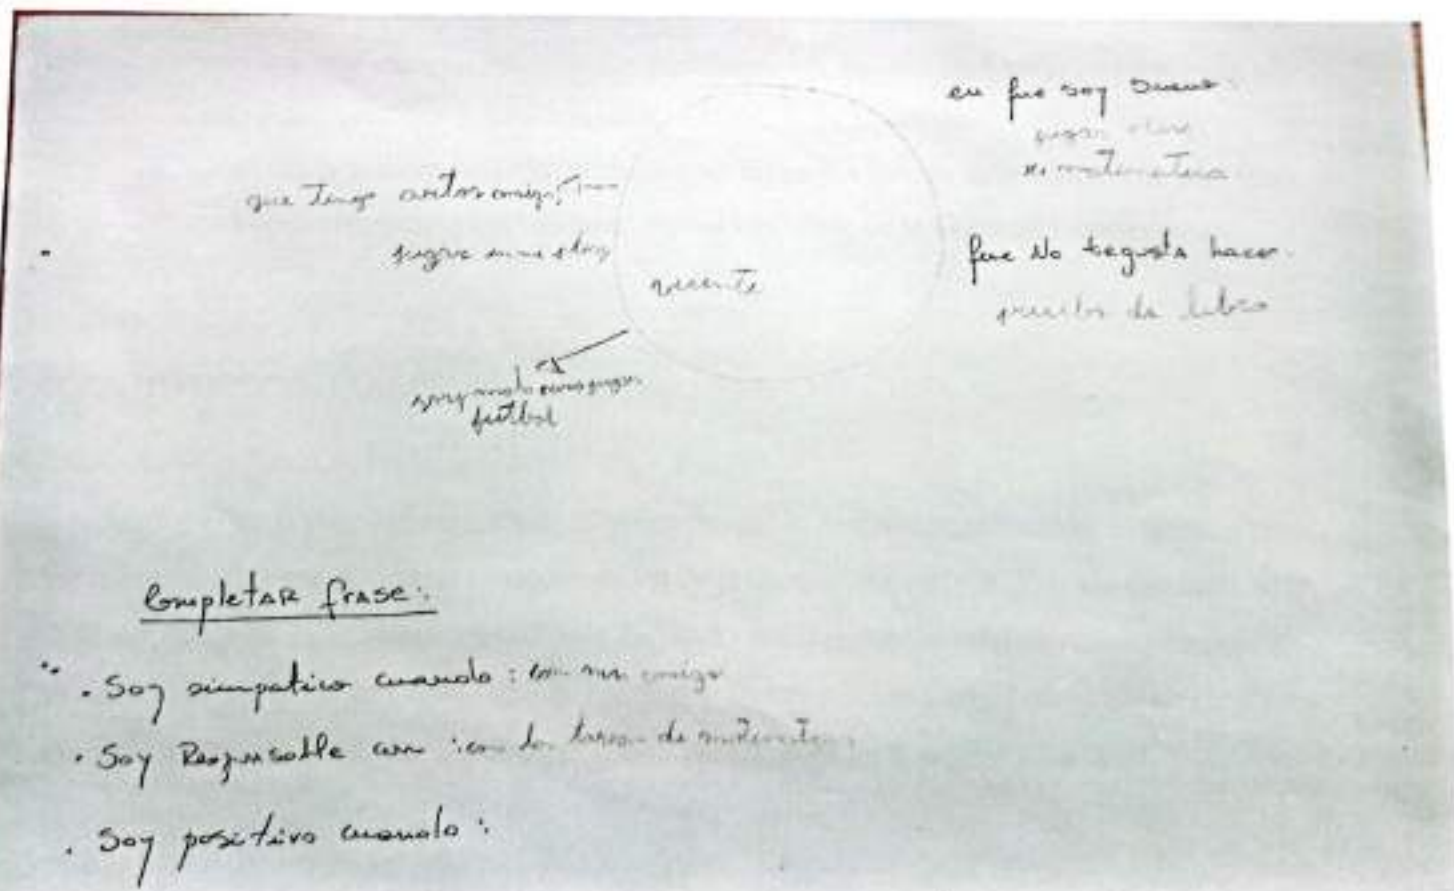 en que soy bueno:
jugar
matematica
que tengo amigo,
jugar
que No te gusta hacer.
prueba de libro
vicente
soy malo para jugar
futbol
Completar frase:
. Soy simpatico cuando: con mis amigo
. Soy Responsable con : con las tarea de matematica
. Soy positivo cuando :